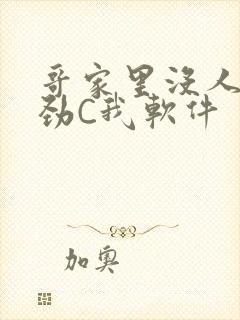 哥家里没人
劲C我软件
加奥